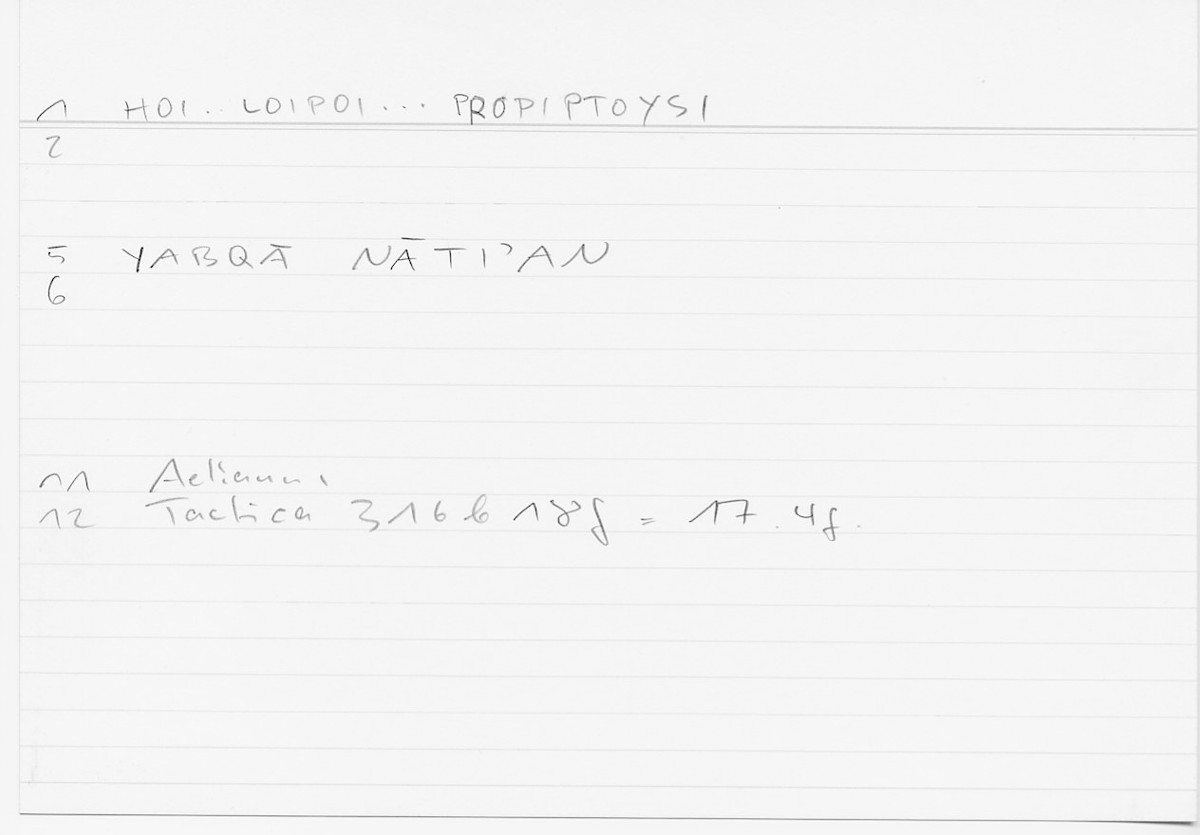 1 HOI.. LOIPOI... PROPIPTOYSI
2
5 YABQĀ NĀTIʾAN
6
11 Aelianus
12 Tactica 316b 18f = 17.4f.